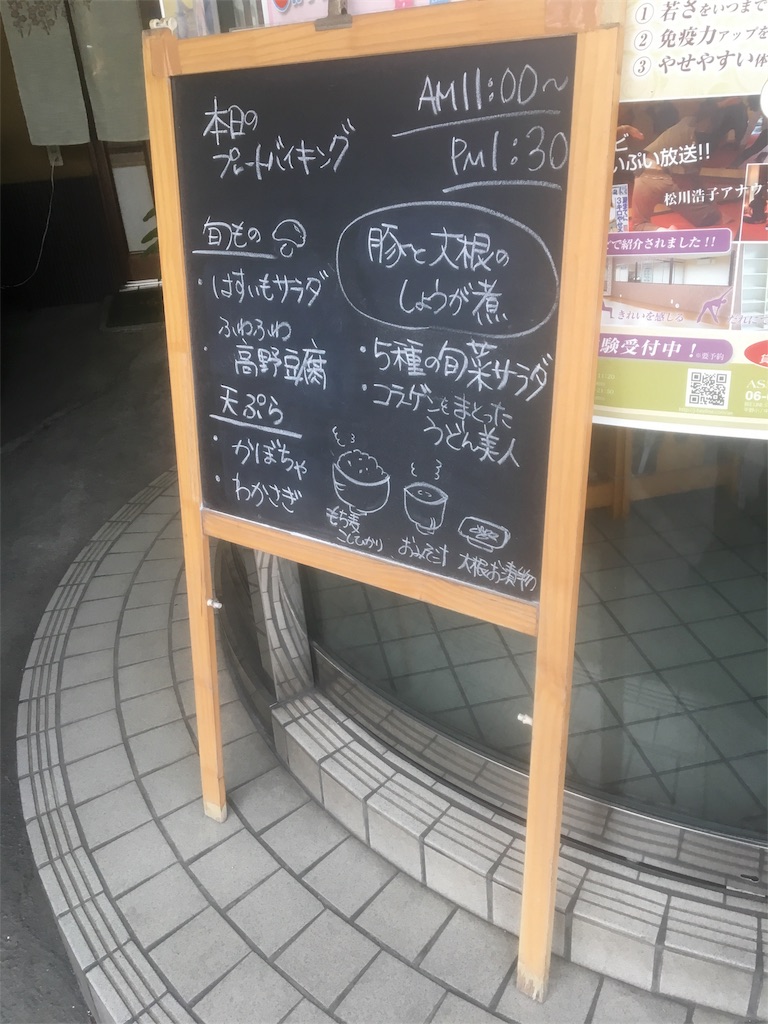 本日の
プレートバイキング
AM11:00〜
PM1:30
旬もの
・はすいもサラダ
・ふわふわ
高野豆腐
天ぷら
・かぼちゃ
・わかさぎ
豚と大根の
しょうが煮
・5種の旬菜サラダ
・コラーゲンをまとった
うどん美人
もち麦
こしひかり
おみそ汁
大根お漬物
① 若さをいつまで
② 免疫力アップを
③ やせやすい体
いぷい放送!!
松川浩子アナウ
で紹介されました!!
きれいを感じる
験受付中！※要予約
06-